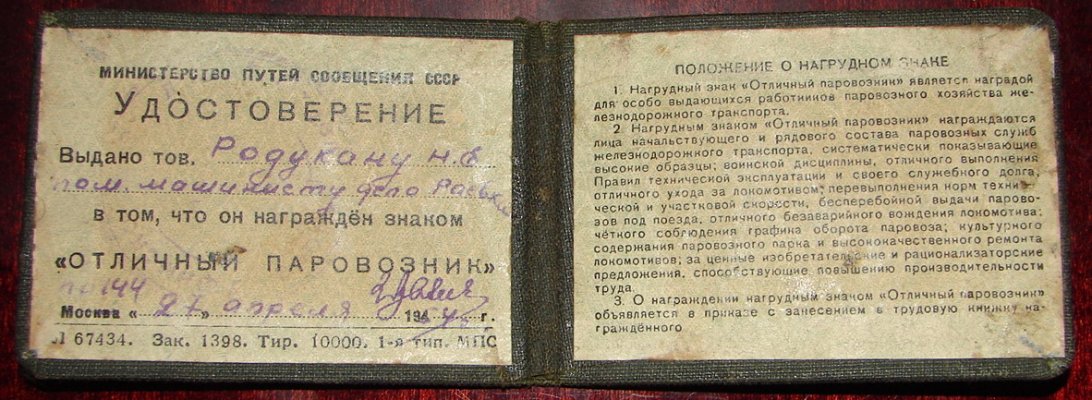 МИНИСТЕРСТВО ПУТЕЙ СООБЩЕНИЯ СССР
УДОСТОВЕРЕНИЕ
Выдано тов. Родукану Н.Е
пом. машинисту депо
в том, что он награждён знаком
«ОТЛИЧНЫЙ ПАРОВОЗНИК»
144
Москва « 21 » апреля 194 г.
Л 67434. Зак. 1398. Тир. 10000. 1-я тип. МПС
ПОЛОЖЕНИЕ О НАГРУДНОМ ЗНАКЕ
1. Нагрудный знак «Отличный паровозник» является наградой
для особо выдающихся работников паровозного хозяйства же-
лезнодорожного транспорта.
2. Нагрудным знаком «Отличный паровозник» награждаются
лица начальствующего и рядового состава паровозных служб
железнодорожного транспорта, систематически показывающие
высокие образцы; воинской дисциплины, отличного выполнения
Правил технической эксплуатации и своего служебного долга,
отличного ухода за локомотивом; перевыполнения норм техни-
ческой и участковой скорости, бесперебойной выдачи парово-
зов под поезда, отличного безаварийного вождения локомотива;
чёткого соблюдения графика оборота паровоза; культурного
содержания паровозного парка и высококачественного ремонта
локомотивов; за ценные изобретательские и рационализаторские
предложения, способствующие повышению производительности
труда.
3. О награждении нагрудным значом «Отличный паровозник»
объявляется в приказе с занесением в трудовую книжку на-
граждённого